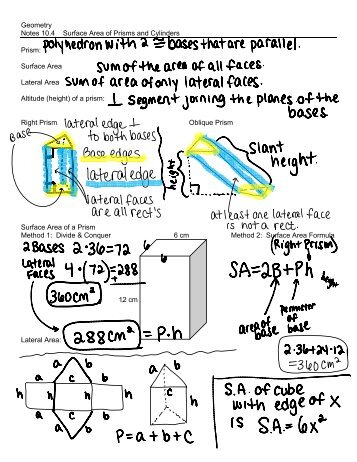 Geometry
Notes 10.4 Surface Area of Prisms and Cylinders
Prism: polyhedron with 2 ≅ bases that are parallel.
Surface Area sum of the area of all faces.
Lateral Area sum of area of only lateral faces.
Altitude (height) of a prism: ⊥ segment joining the planes of the bases
Right Prism lateral edge ⊥ to both bases
Base
Base edges
lateral edge
lateral faces are all rect's
Oblique Prism
height
Slant height.
at least one lateral face is not a rect.
Surface Area of a Prism
Method 1: Divide & Conquer
2 Bases 2·36=72
Lateral Faces 4·(72)=288
360cm²
6 cm
6
6
12 cm
Lateral Area: 288cm² = P·h
Method 2: Surface Area Formula
(Right Prism)
SA=2B+Ph
height
area of base
perimeter of base
2·36+24·12
=360cm²
a
b
a
c
b
h
h
c
a
b
a
b
c
h
P=a+b+c
S.A. of cube
with edge of x
is S.A.=6x²